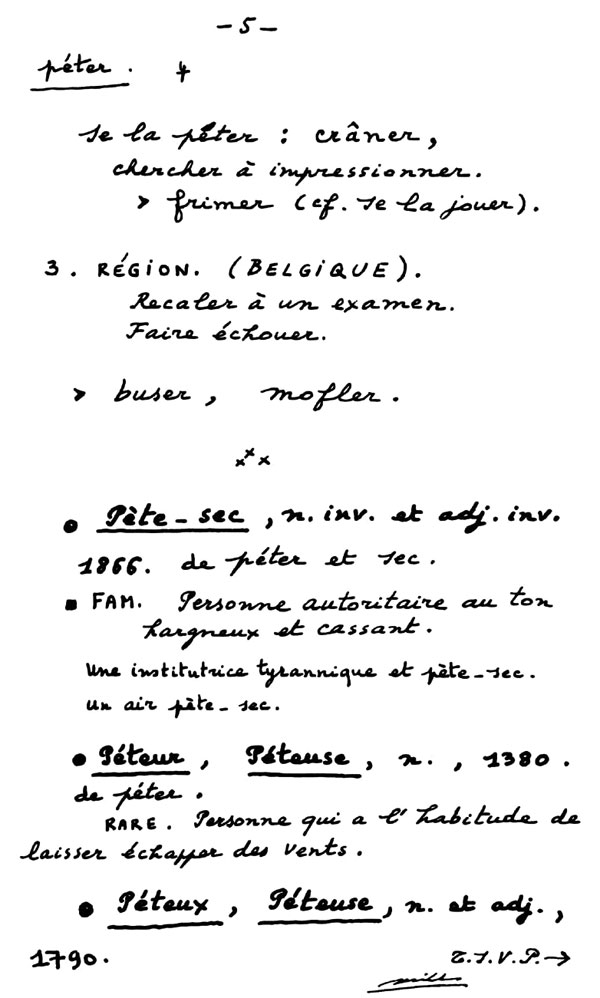 - 5 -
péter. 4
se la péter : crâner,
chercher à impressionner.
> frimer (cf. se la jouer).
3. RÉGION. (BELGIQUE).
Recaler à un examen.
Faire échouer.
> buser, mofler.
xxx
• Pète-sec, n. inv. et adj. inv.
1866. de péter et sec.
▪ FAM. Personne autoritaire au ton
hargneux et cassant.
Une institutrice tyrannique et pète-sec.
un air pète-sec.
• Péteur, Péteuse, n., 1380.
de péter.
RARE. Personne qui a l'habitude de
laisser échapper des vents.
• Péteux, Péteuse, n. et adj.,
1790. T.S.V.P. →